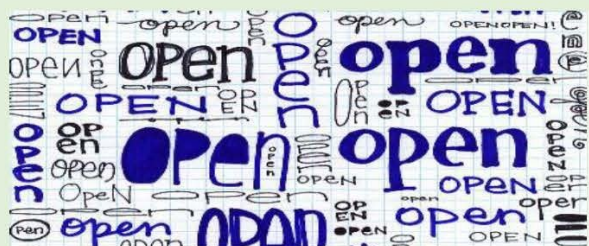 open
open
open
open
OPENOPEN!
OPEN
open
open
open
open
OPEN
open
OPEN
OPEN
open
open
OPEN
open
open
open
open
open
open
open
open
OPEN
OPEN
OPEN
OpeN
open
open
open
OPEN
open
open
open
open
open
OPEN
open